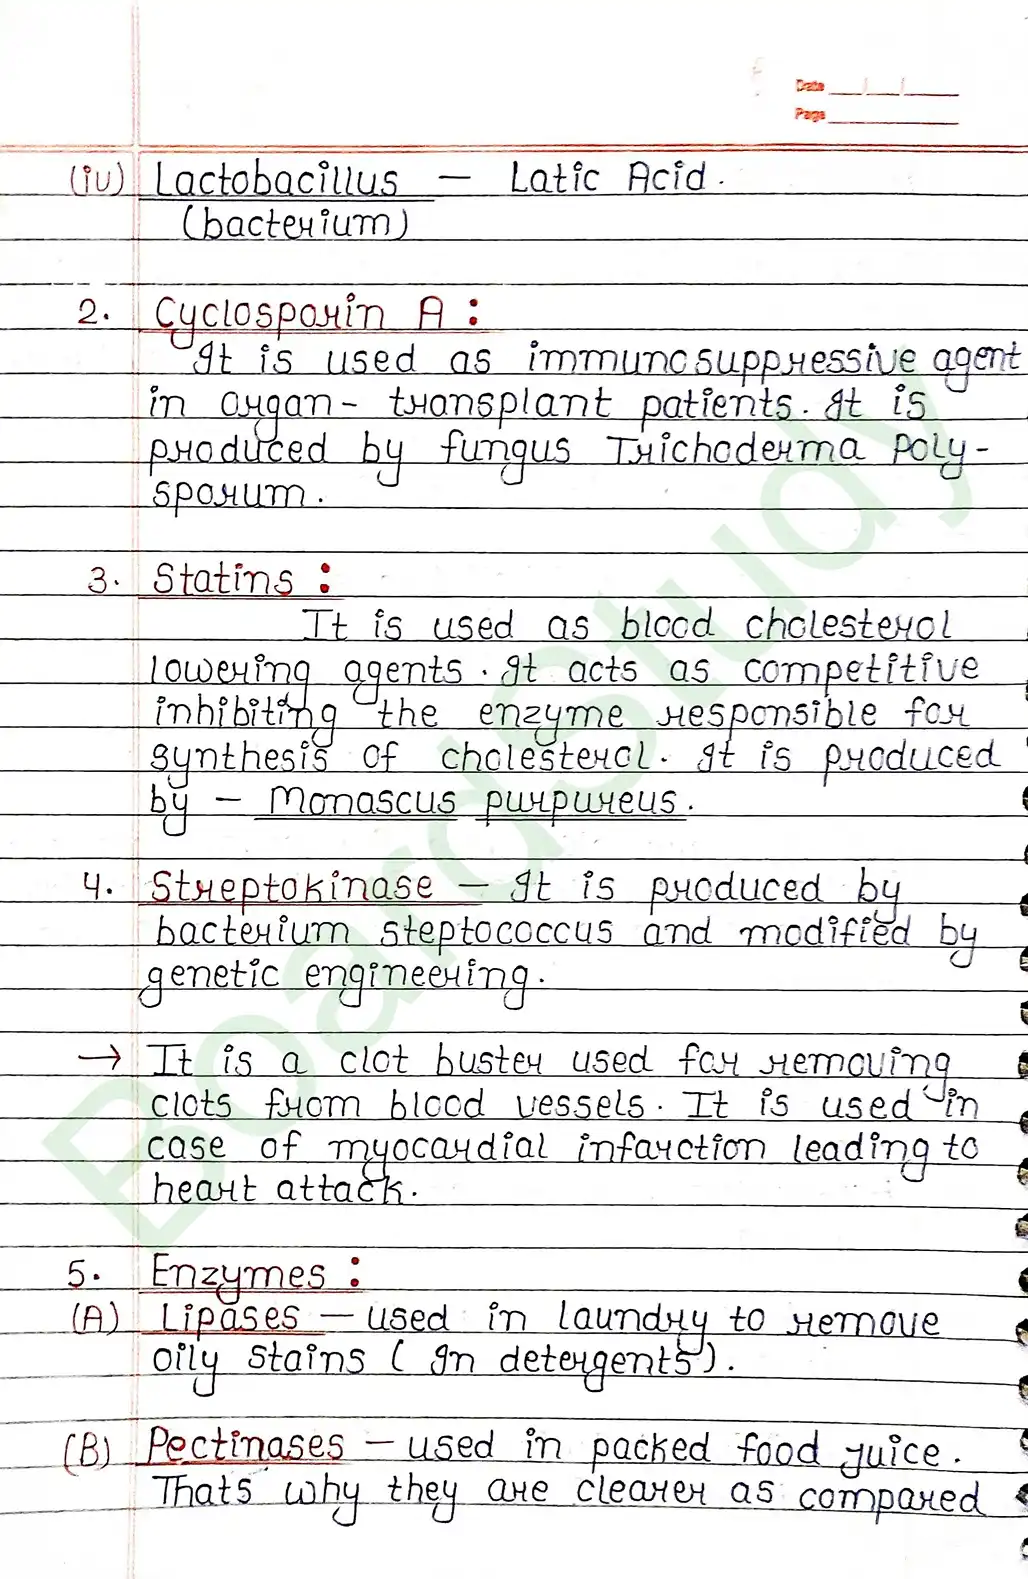 Date
Page
(iv) Lactobacillus — Latic Acid.
(bacterium)
2. Cyclosporin A :
It is used as immunosuppressive agent
in organ- transplant patients. It is
produced by fungus Trichoderma Poly-
sporum.
3. Statins :
It is used as blood cholesterol
lowering agents. It acts as competitive
inhibiting the enzyme responsible for
synthesis of cholesterol. It is produced
by — Monascus purpureus.
4. Streptokinase — It is produced by
bacterium steptococcus and modified by
genetic engineering.
→ It is a clot buster used for removing
clots from blood vessels. It is used in
case of myocardial infarction leading to
heart attack.
5. Enzymes :
(A) Lipases — used in laundry to remove
oily stains ( In detergents).
(B) Pectinases — used in packed food juice.
Thats why they are clearer as compared
BoardStudy